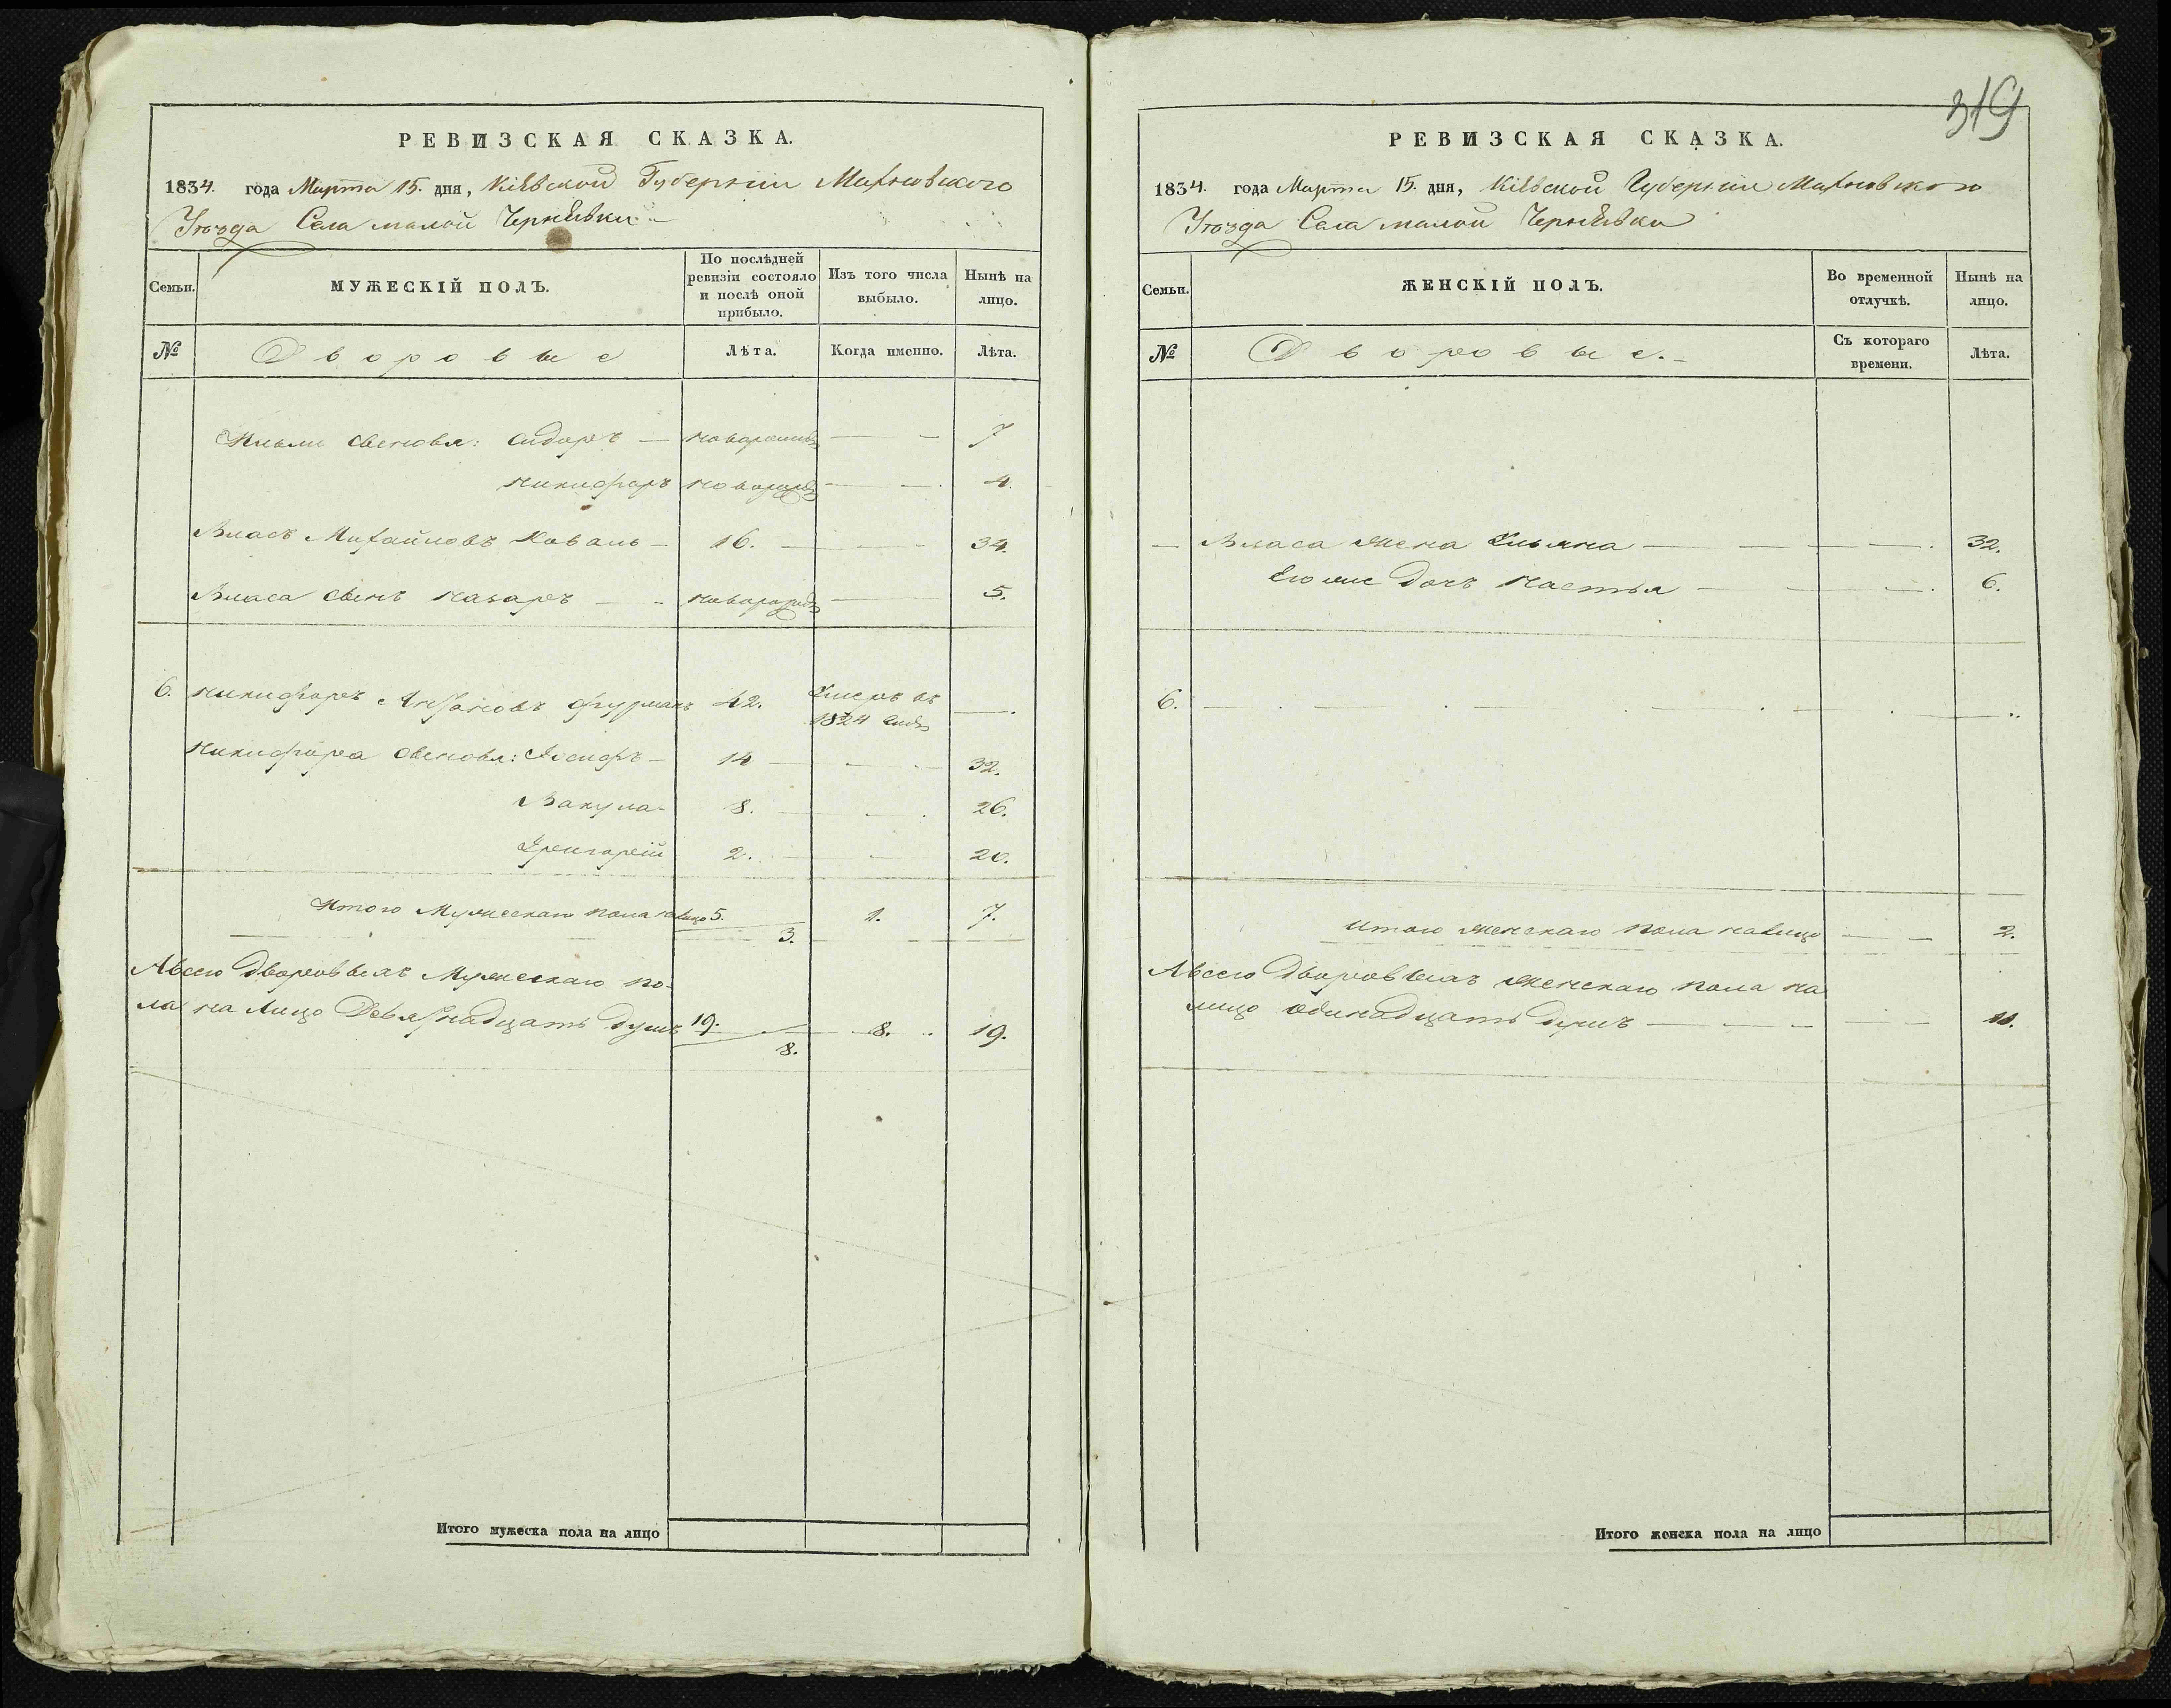 319
РЕВИЗСКАЯ СКАЗКА.
1834. года Марта 15. дня, Кіевской Губерніи Махновского
Уѣзда Села малой Чернявки
Семьи. МУЖЕСКІЙ ПОЛЪ. По послѣдней ревизіи состояло и послѣ оной прибыло. Изъ того числа выбыло. Нынѣ на лицо.
№ Дворовые Лѣта. Когда именно. Лѣта.
сыновья: Сидоръ — новорожд — — 7
Никифоръ новорожд — — 4.
Власъ Михайловъ Коваль — 16. — — 34.
Власа сынъ Назаръ — новорожд — 5.
6. Никифоръ Антоновъ Фурманъ 42. Умеръ въ 1824 годѣ — .
Никифора сыновья: Іосифъ — 14 — — 32.
Вакула — 8. — — 26.
Григорій 2. — — 20.
Итого Мужескаго пола на лицо 5. 3. 1. 7.
А всего Дворовыхъ Мужескаго по-
ла на лицо Девятнадцать душъ 19. 8. 8. 19.
Итого мужеска пола на лицо
РЕВИЗСКАЯ СКАЗКА.
1834. года Марта 15. дня, Кіевской Губерніи Махновского
Уѣзда Села малой Чернявки
Семьи. ЖЕНСКІЙ ПОЛЪ. Во временной отлучкѣ. Нынѣ на лицо.
№ Дворовые. Съ котораго времени. Лѣта.
— Власа жена Ульяна — — — 32.
Его же дочь Настья — — — 6.
6. — — — —
Итого женскаго пола на лицо — — 2.
А всего Дворовыхъ женскаго пола на
лицо одинадцать душъ — — — 11.
Итого женска пола на лицо